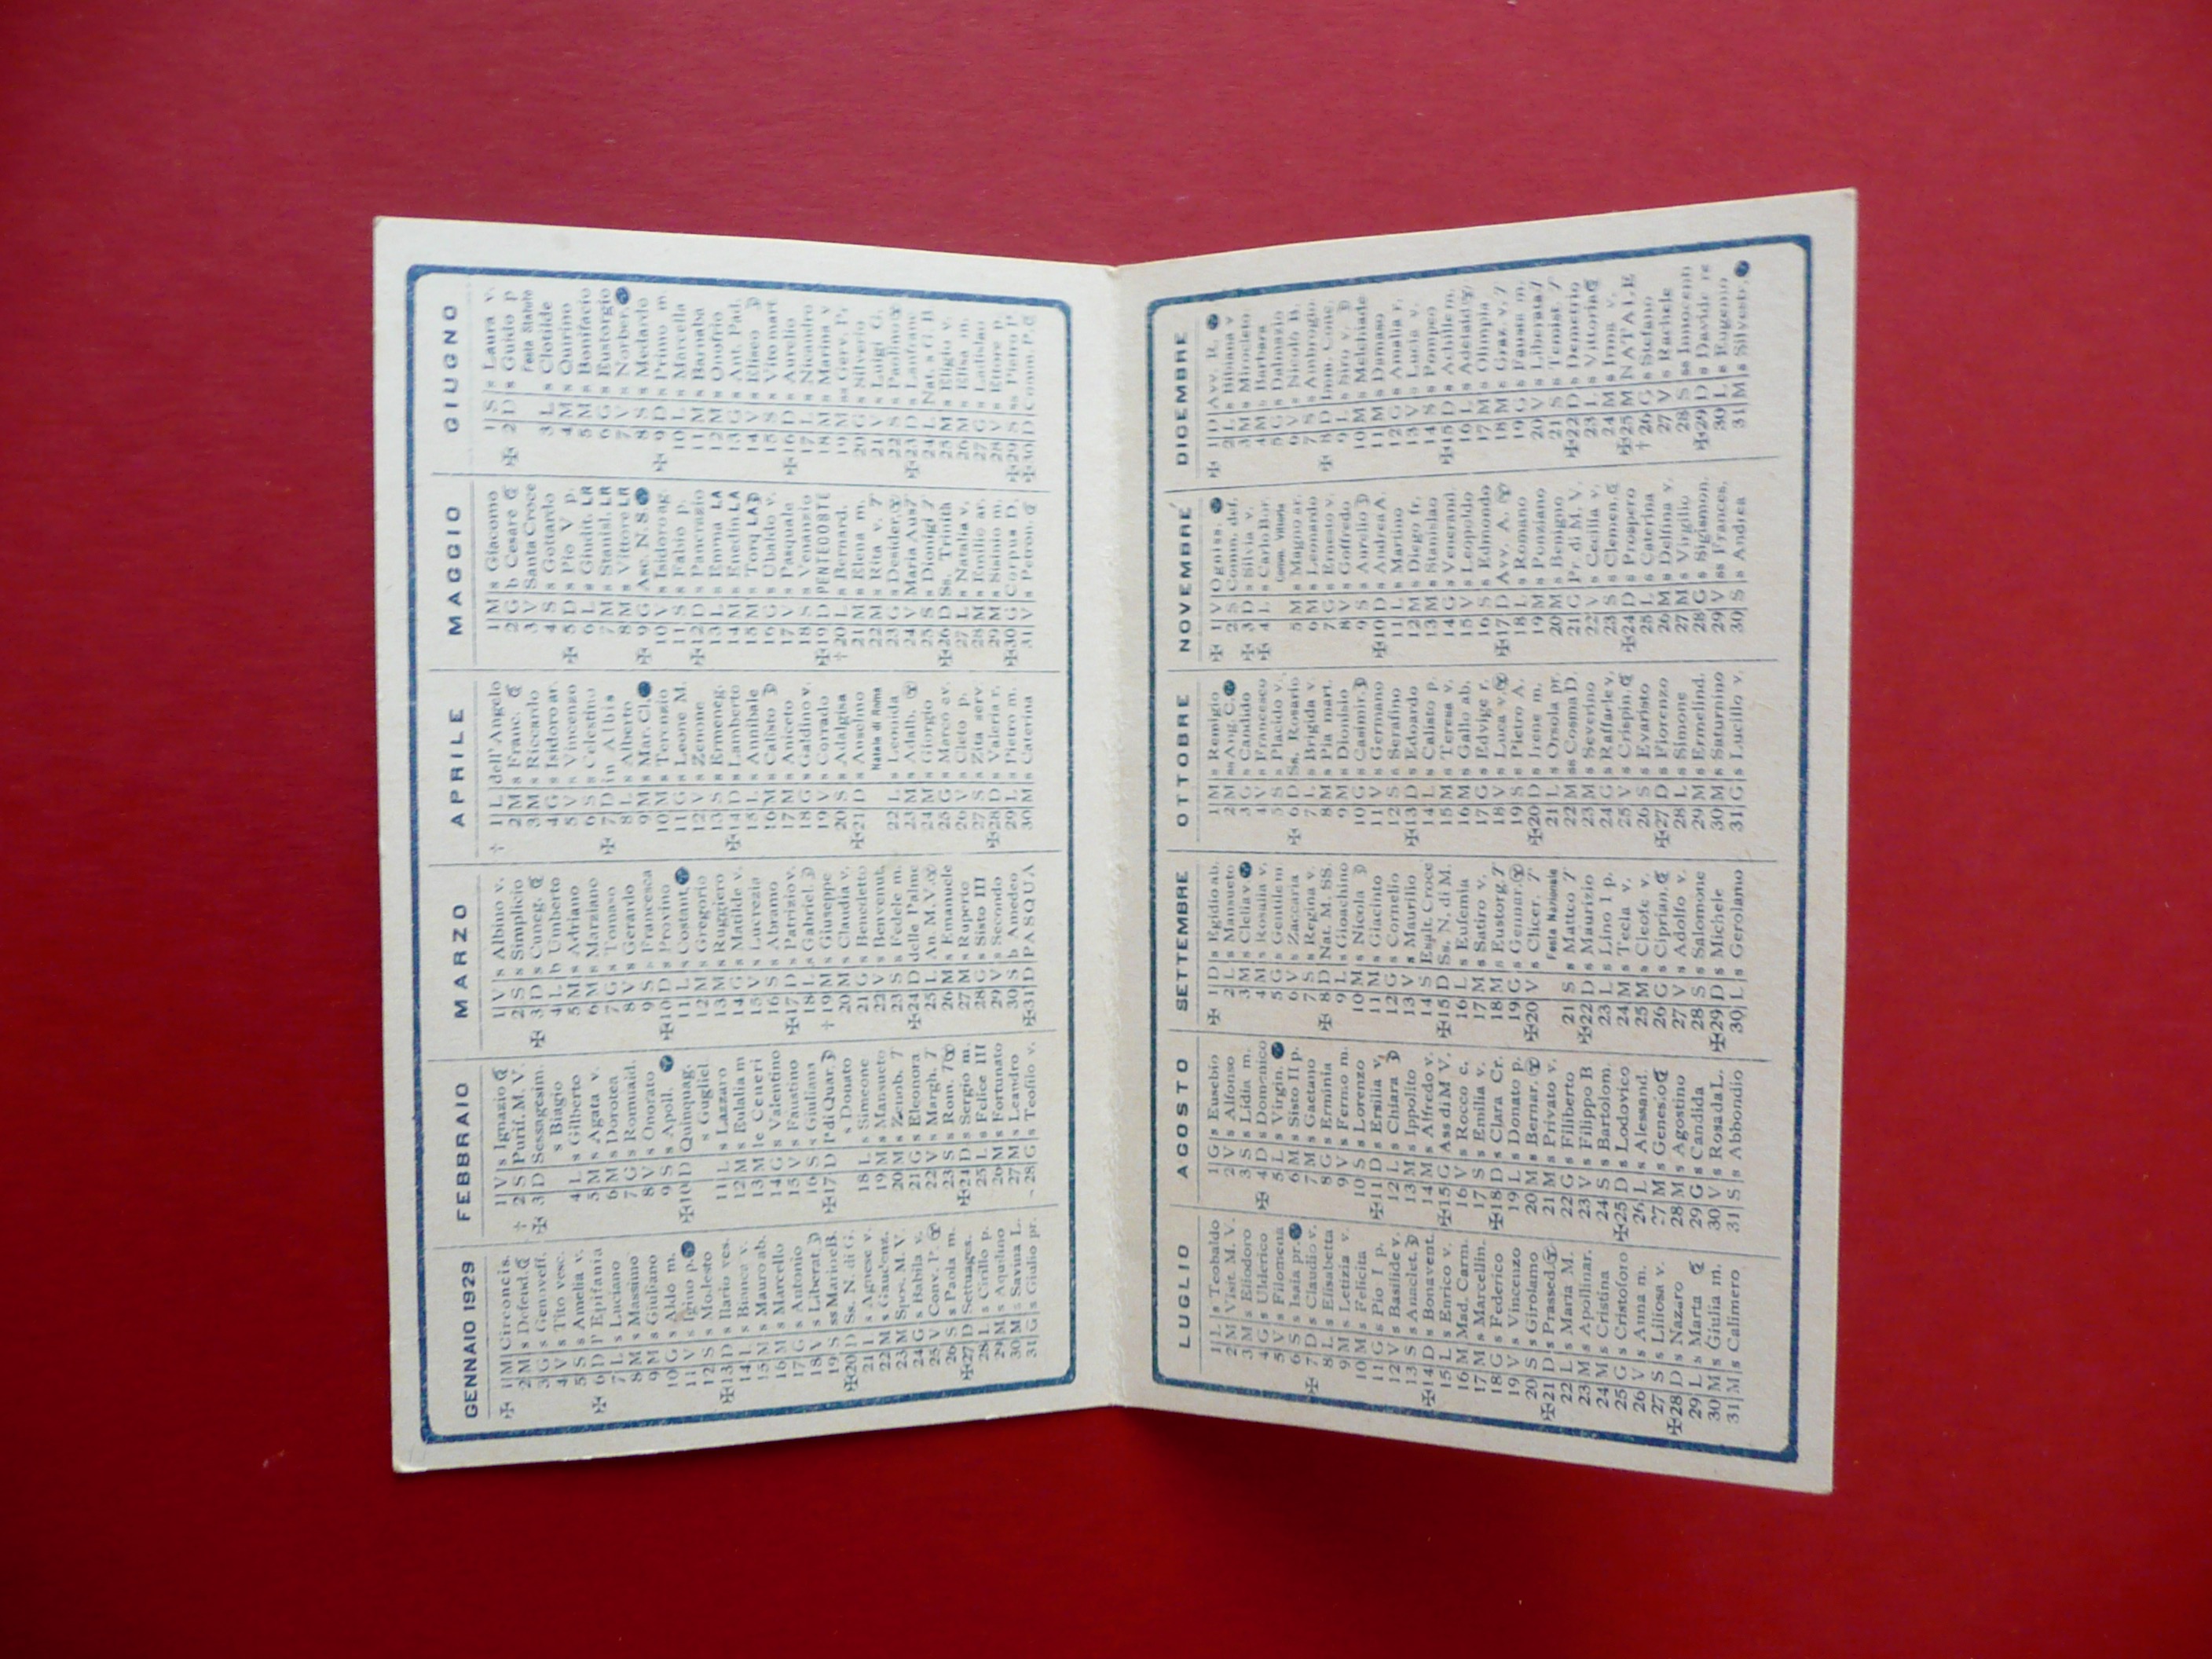 GENNAIO 1929
✠ 1 M Circoncis.
2 M s Defend. ☾
3 G s Genoveff.
4 V s Tito vesc.
5 S s Amelia v.
✠ 6 D l'Epifania
7 L s Luciano
8 M s Massimo
9 M s Giuliano
10 G s Aldo m.
11 V s Igino p. ●
12 S s Modesto
✠ 13 D s Ilario ves.
14 L s Bianca v.
15 M s Mauro ab.
16 M s Marcello
17 G s Antonio
18 V s Liberat. ☽
19 S ss Mario e B.
✠ 20 D Ss. N. di G.
21 L s Agnese v.
22 M s Gaudenz.
23 M Spos. M. V.
24 G s Babila v.
25 V Conv. P.
26 S s Paola m.
✠ 27 D Settuages.
28 L s Cirillo p.
29 M s Aquilino
30 M s Savina L.
31 G s Giulio pr.
FEBBRAIO
1 V s Ignazio ☾
† 2 S Purif. M. V.
✠ 3 D Sessagesim.
s Biagio
4 L s Gilberto
5 M s Agata v.
6 M s Dorotea
7 G s Romuald.
8 V s Onorato
9 S s Apoll. ●
✠ 10 D Quinquag.
s Gugliel.
11 L s Lazzaro
12 M s Eulalia m
13 M le Ceneri
14 G s Valentino
15 V s Faustino
16 S s Giuliana
✠ 17 D I d Quar. ☽
s Donato
18 L s Simeone
19 M s Mansueto
20 M s Zenob. T
21 G s Eleonora
22 V s Margh. T
23 S s Rom. T
✠ 24 D s Sergio m.
25 L s Felice III
26 M s Fortunato
27 M s Leandro
28 G s Teofilo v.
MARZO
1 V s Albino v.
2 S s Simplicio
✠ 3 D s Cuneg. ☾
4 L b Umberto
5 M s Adriano
6 M s Marziano
7 G s Tomaso
8 V s Gerardo
9 S s Francesca
✠ 10 D s Provino
11 L s Costant. ●
12 M s Gregorio
13 M s Ruggiero
14 G s Matilde v.
15 V s Lucrezia
16 S s Abramo
✠ 17 D s Patrizio v.
18 L s Gabriel. ☽
† 19 M s Giuseppe
20 M s Claudia v.
21 G s Benedetto
22 V s Benvenut.
23 S s Fedele m.
✠ 24 D delle Palme
25 L An. M. V.
26 M s Emanuele
27 M s Ruperto
28 G s Sisto III
29 V s Secondo
30 S b Amedeo
✠ 31 D PASQUA
APRILE
† 1 L dell'Angelo
2 M s Franc. ☾
3 M s Riccardo
4 G s Isidoro ar.
5 V s Vincenzo
6 S s Celestino
✠ 7 D in Albis
8 L s Alberto
9 M s Mar. Cl. ●
10 M s Terenzio
11 G s Leone M.
12 V s Zenone
13 S s Ermeneg.
✠ 14 D s Lamberto
15 L s Annibale
16 M s Calisto ☽
17 M s Aniceto
18 G s Galdino v.
19 V s Corrado
20 S s Adalgisa
✠ 21 D s Anselmo
Natale di Roma
22 L s Leonida
23 M s Adalb.
24 M s Giorgio
25 G s Marco ev.
26 V s Cleto p.
27 S s Zita serv.
✠ 28 D s Valeria r.
29 L s Pietro m.
30 M s Caterina
MAGGIO
1 M s Giacomo
2 G b Cesare ☾
3 V Santa Croce
4 S s Gottardo
✠ 5 D s Pio V p.
6 L s Giudit. LR
7 M s Stanisl. LR
8 M s Vittore LR
✠ 9 G Asc. N. S ●
10 V s Isidoro ag.
11 S s Fabio p.
✠ 12 D s Pancrazio
13 L s Emma LA
14 M s Enedin. LA
15 M s Torq. LA ☽
16 G s Ubaldo v.
17 V s Pasquale
18 S s Venanzio
✠ 19 D PENTECOSTE
† 20 L s Bernard.
21 M s Elena m.
22 M s Rita v. T
23 G s Desider.
24 V Maria Aus T
25 S s Dionigi T
✠ 26 D Ss. Trinità
27 L s Natalia v.
28 M s Emilio ar.
29 M s Sisinio m.
✠ 30 G Corpus D.
31 V s Petron. ☾
GIUGNO
1 S s Laura v.
✠ 2 D s Guido p
Festa Statuto
3 L s Clotilde
4 M s Quirino
5 M s Bonifacio
6 G s Eustorgio
7 V s Norber. ●
8 S s Medardo
✠ 9 D s Primo m
10 L s Marcella
11 M s Barnaba
12 M s Onofrio
13 G s Ant. Pad.
14 V s Eliseo ☽
15 S s Vito mart
✠ 16 D s Aurelio
17 L s Nicandro
18 M s Marina v
19 M ss Gerv. Pr.
20 G s Silverio
21 V s Luigi G.
22 S s Paolino
✠ 23 D s Lanfranc
24 L Nat. s G. B
25 M s Eligio v.
26 M s Elisa m.
27 G s Ladislao
28 V s Ettore p.
✠ 29 S ss Pietro P
✠ 30 D Comm. P. ☾
LUGLIO
1 L s Teobaldo
2 M Visit. M. V.
3 M s Eliodoro
4 G s Ulderico
5 V s Filomena
6 S s Isaia pr. ●
✠ 7 D s Claudio v.
8 L s Elisabetta
9 M s Letizia v.
10 M s Felicita
11 G s Pio I p.
12 V s Basilide v.
13 S s Anaclet. ☽
✠ 14 D s Bonavent.
15 L s Enrico v.
16 M Mad. Carm.
17 M s Marcellin.
18 G s Federico
19 V s Vincenzo
20 S s Girolamo
✠ 21 D s Prassed.
22 L s Maria M.
23 M s Apollinar.
24 M s Cristina
25 G s Cristoforo
26 V s Anna m.
27 S s Liliosa v.
✠ 28 D s Nazaro
29 L s Marta ☾
30 M s Giulia m.
31 M s Calimero
AGOSTO
1 G s Eusebio
2 V s Alfonso
3 S s Lidia m.
✠ 4 D s Domenico
5 L s Virgin. ●
6 M s Sisto II p.
7 M s Gaetano
8 G s Erminia
9 V s Fermo m.
10 S s Lorenzo
✠ 11 D s Ersilia v.
12 L s Chiara ☽
13 M s Ippolito
14 M s Alfredo v.
✠ 15 G Ass di M V.
16 V s Rocco c.
17 S s Emilia v.
✠ 18 D s Clara Cr.
19 L s Donato p.
20 M s Bernar.
21 M s Privato v.
22 G s Filiberto
23 V s Filippo B
24 S s Bartolom.
✠ 25 D s Lodovico
26 L s Alessand.
27 M s Genes. ☾
28 M s Agostino
29 G s Candida
30 V s Rosa da L.
31 S s Abbondio
SETTEMBRE
✠ 1 D s Egidio ab.
2 L s Mansueto
3 M s Clelia v. ●
4 M s Rosalia v.
5 G s Gentile m
6 V s Zaccaria
7 S s Regina v.
✠ 8 D Nat. M. SS.
9 L s Gioachino
10 M s Nicola ☽
11 M s Giacinto
12 G s Cornelio
13 V s Maurilio
14 S Esalt. Croce
✠ 15 D Ss. N. di M.
16 L s Eufemia
17 M s Satiro v.
18 M s Eustorg. T
19 G s Gennar.
✠ 20 V s Clicer. T
Festa Nazionale
21 S s Matteo T
✠ 22 D s Maurizio
23 L s Lino I p.
24 M s Tecla v.
25 M s Cleofe v.
26 G s Ciprian. ☾
27 V s Adolfo v.
28 S s Salomone
✠ 29 D s Michele
30 L s Gerolamo
OTTOBRE
1 M s Remigio
2 M ss Ang. C. ●
3 G s Candido
4 V s Francesco
5 S s Placido v.
✠ 6 D Ss. Rosario
7 L s Brigida v.
8 M s Pia mart.
9 M s Dionisio
10 G s Casimir. ☽
11 V s Germano
12 S s Serafino
✠ 13 D s Edoardo
14 L s Calisto p.
15 M s Teresa v.
16 M s Gallo ab.
17 G s Edvige r.
18 V s Luca v.
19 S s Pietro A.
✠ 20 D s Irene m.
21 L s Orsola pr.
22 M ss Cosma D.
23 M s Severino
24 G s Raffaele v.
25 V s Crispin. ☾
26 S s Evaristo
✠ 27 D s Fiorenzo
28 L s Simone
29 M s Ermelind.
30 M s Saturnino
31 G s Lucillo v.
NOVEMBRE
✠ 1 V Ogniss. ●
2 S Comm. def.
✠ 3 D s Silvia v.
✠ 4 L s Carlo Bor.
Comm. Vittoria
5 M s Magno ar.
6 M s Leonardo
7 G s Ernesto v.
8 V s Goffredo
9 S s Aurelio ☽
✠ 10 D s Andrea A.
11 L s Martino
12 M s Diego fr.
13 M s Stanislao
14 G s Venerand.
15 V s Leopoldo
16 S s Edmondo
✠ 17 D Avv. A.
18 L s Romano
19 M s Ponziano
20 M s Benigno
21 G Pr. di M. V.
22 V s Cecilia v.
23 S s Clemen. ☾
✠ 24 D s Prospero
25 L s Caterina
26 M s Delfina v.
27 M s Virgilio
28 G s Sigismon.
29 V ss Frances.
30 S s Andrea
DICEMBRE
✠ 1 D Avv. R. ●
2 L s Bibiana v
3 M s Mirocleto
4 M s Barbara
5 G s Dalmazio
6 V s Nicolò B.
7 S s Ambrogio
✠ 8 D Imm. Conc.
9 L s Siro v. ☽
10 M s Melchiade
11 M s Damaso
12 G s Amalia r.
13 V s Lucia v.
14 S s Pompeo
✠ 15 D s Achille m.
16 L s Adelaid.
17 M s Olimpia
18 M s Graz. v. T
19 G s Fausta m.
20 V s Liberata T
21 S s Temist. T
✠ 22 D s Demetrio
23 L s Vittoria ☾
24 M s Irma v.
✠ 25 M NATALE
† 26 G s Stefano
27 V s Rachele
28 S ss Innocenti
✠ 29 D s Davide re
30 L s Eugenio
31 M s Silvestr. ●